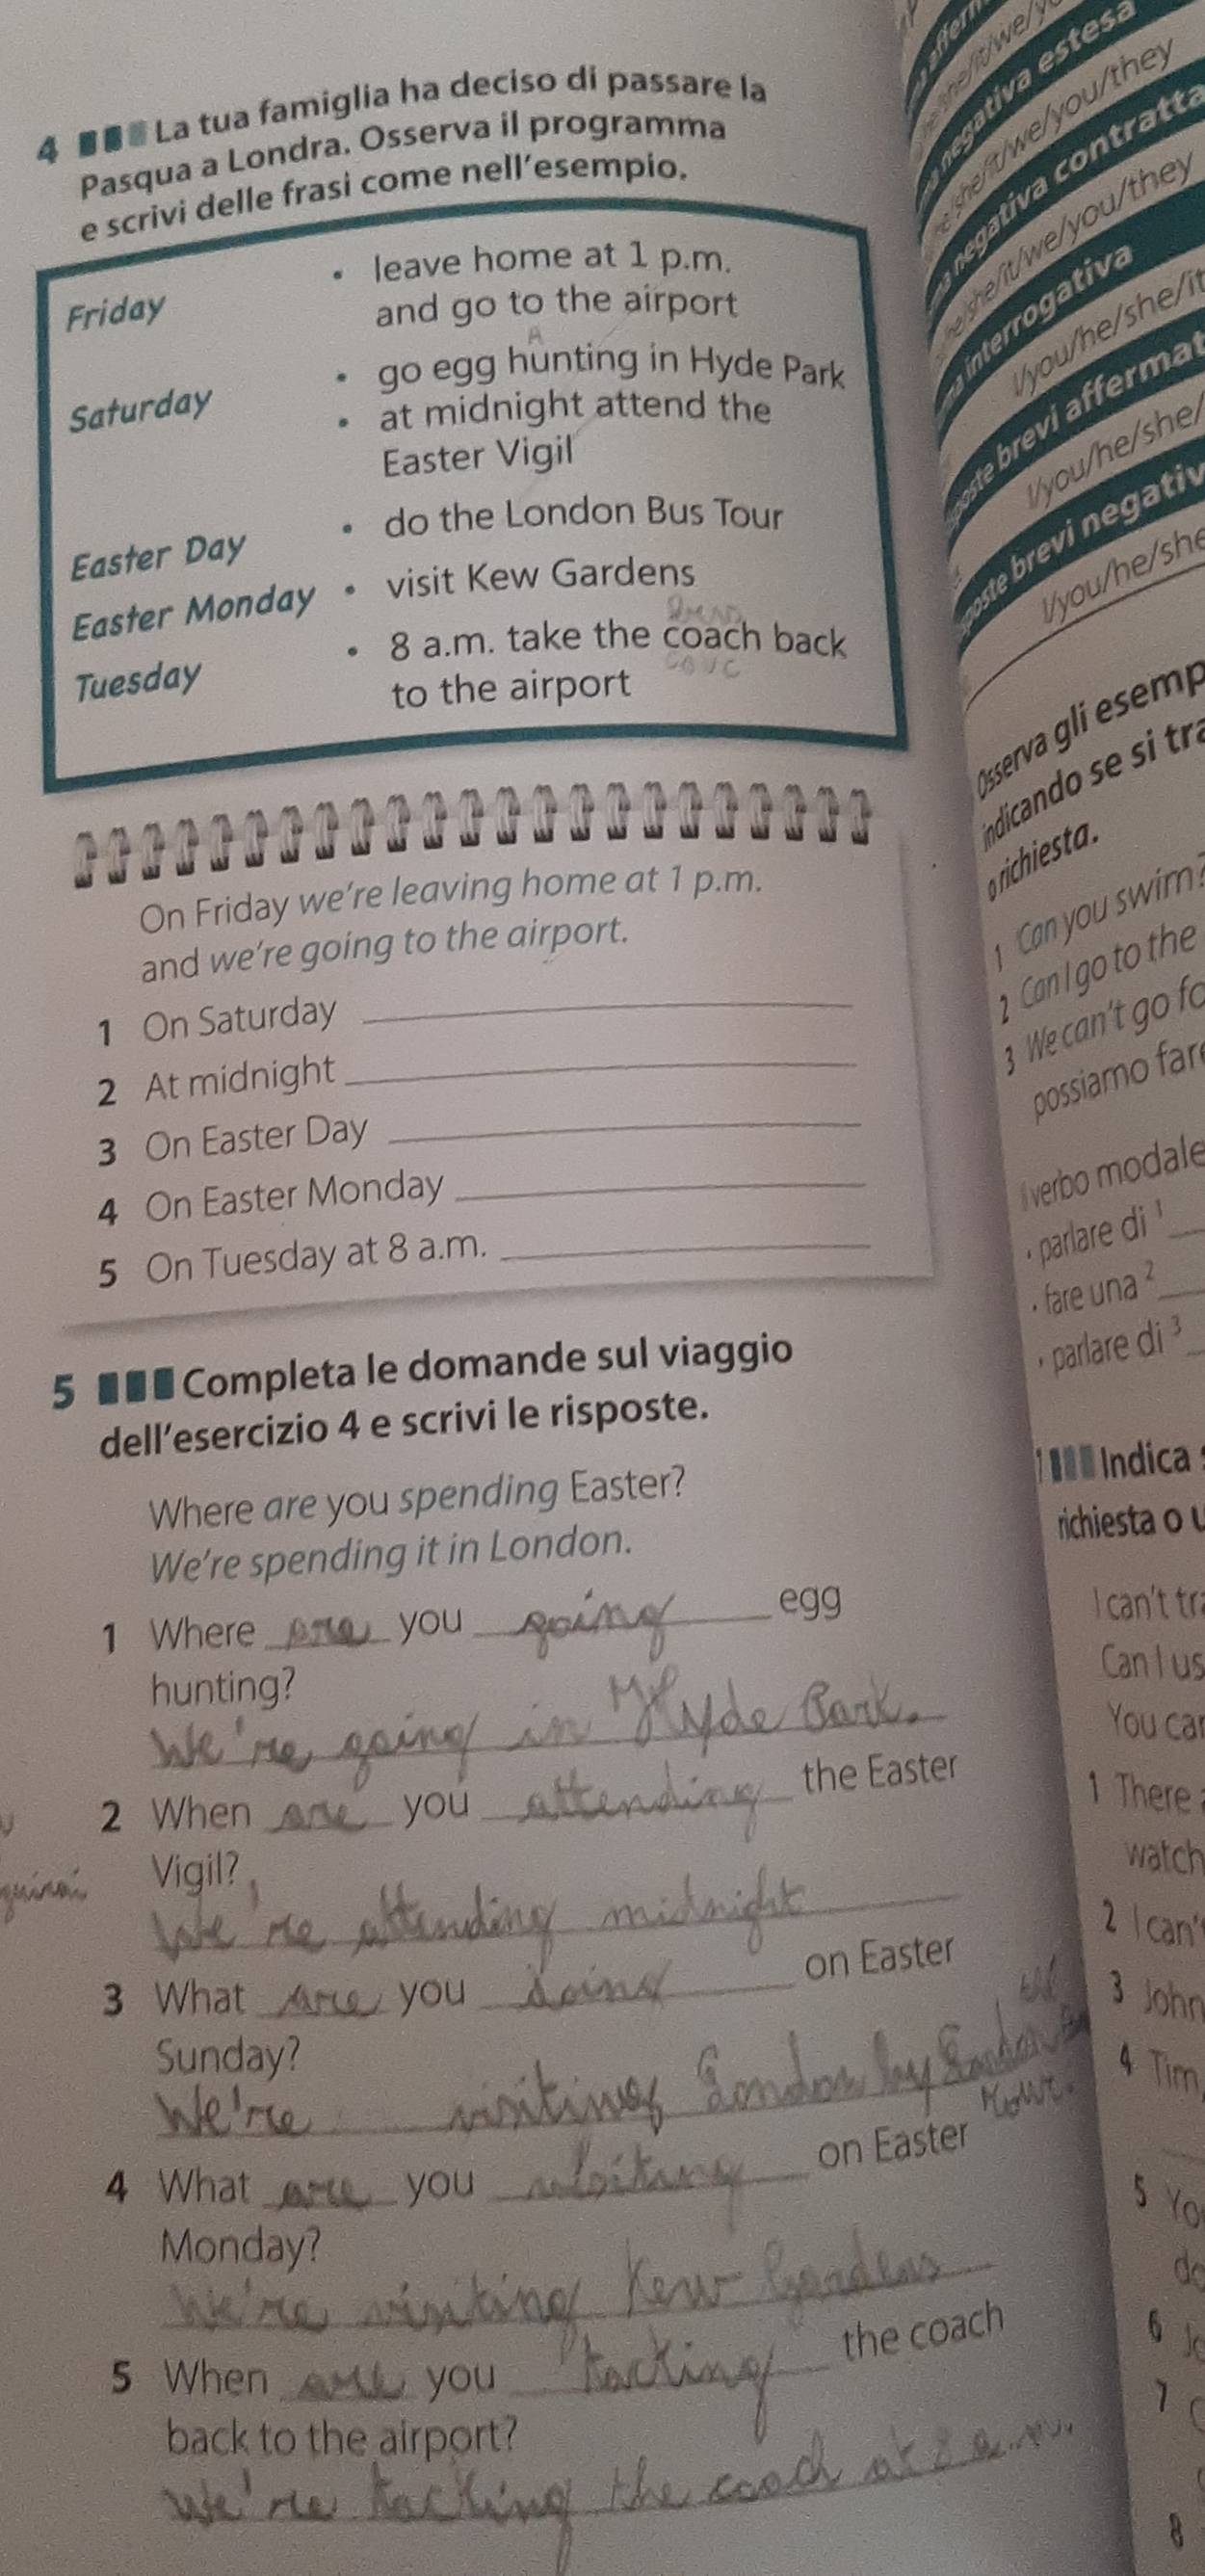 4 La tua famiglia ha deciso di passare la
Pasqua a Londra. Osserva il programma
e scrivi delle frasi come nell'esempio.
Friday
• leave home at 1 p.m.
and go to the airport
Saturday
• go egg hunting in Hyde Park
• at midnight attend the
Easter Vigil
Easter Day
• do the London Bus Tour
Easter Monday
• visit Kew Gardens
Tuesday
• 8 a.m. take the coach back
to the airport
On Friday we're leaving home at 1 p.m.
and we're going to the airport.
1 On Saturday
2 At midnight
3 On Easter Day
4 On Easter Monday
5 On Tuesday at 8 a.m.
5 Completa le domande sul viaggio
dell'esercizio 4 e scrivi le risposte.
Where are you spending Easter?
We're spending it in London.
1 Where are you going egg
hunting?
We're going in Hyde Park.
2 When are you attending the Easter
Vigil?
We're attending midnight
3 What are you doing on Easter
Sunday?
We're visiting London by London
Tour.
4 What are you visiting on Easter
Monday?
We're visiting Kew Gardens
5 When are you tacking the coach
back to the airport?
We're tacking the coach at 8 a.m.
negativa estesa
he/she/it/we/you/they
negativa contratta
he/she/it/we/you/they
interrogativa
I/you/he/she/it
poste brevi affermat
I/you/he/she/
poste brevi negativ
I/you/he/she
Osserva gli esemp
indicando se si tra
o richiesta.
1 Can you swim?
2 Can I go to the
3 We can't go fo
possiamo fare
l verbo modale
• parlare di 1
• fare una 2
• parlare di 3
1 Indica s
richiesta o u
I can't tra
Can I us
You can
1 There
watch
2 I can't
3 John
4 Tim,
5 Yo
do
6
7
8